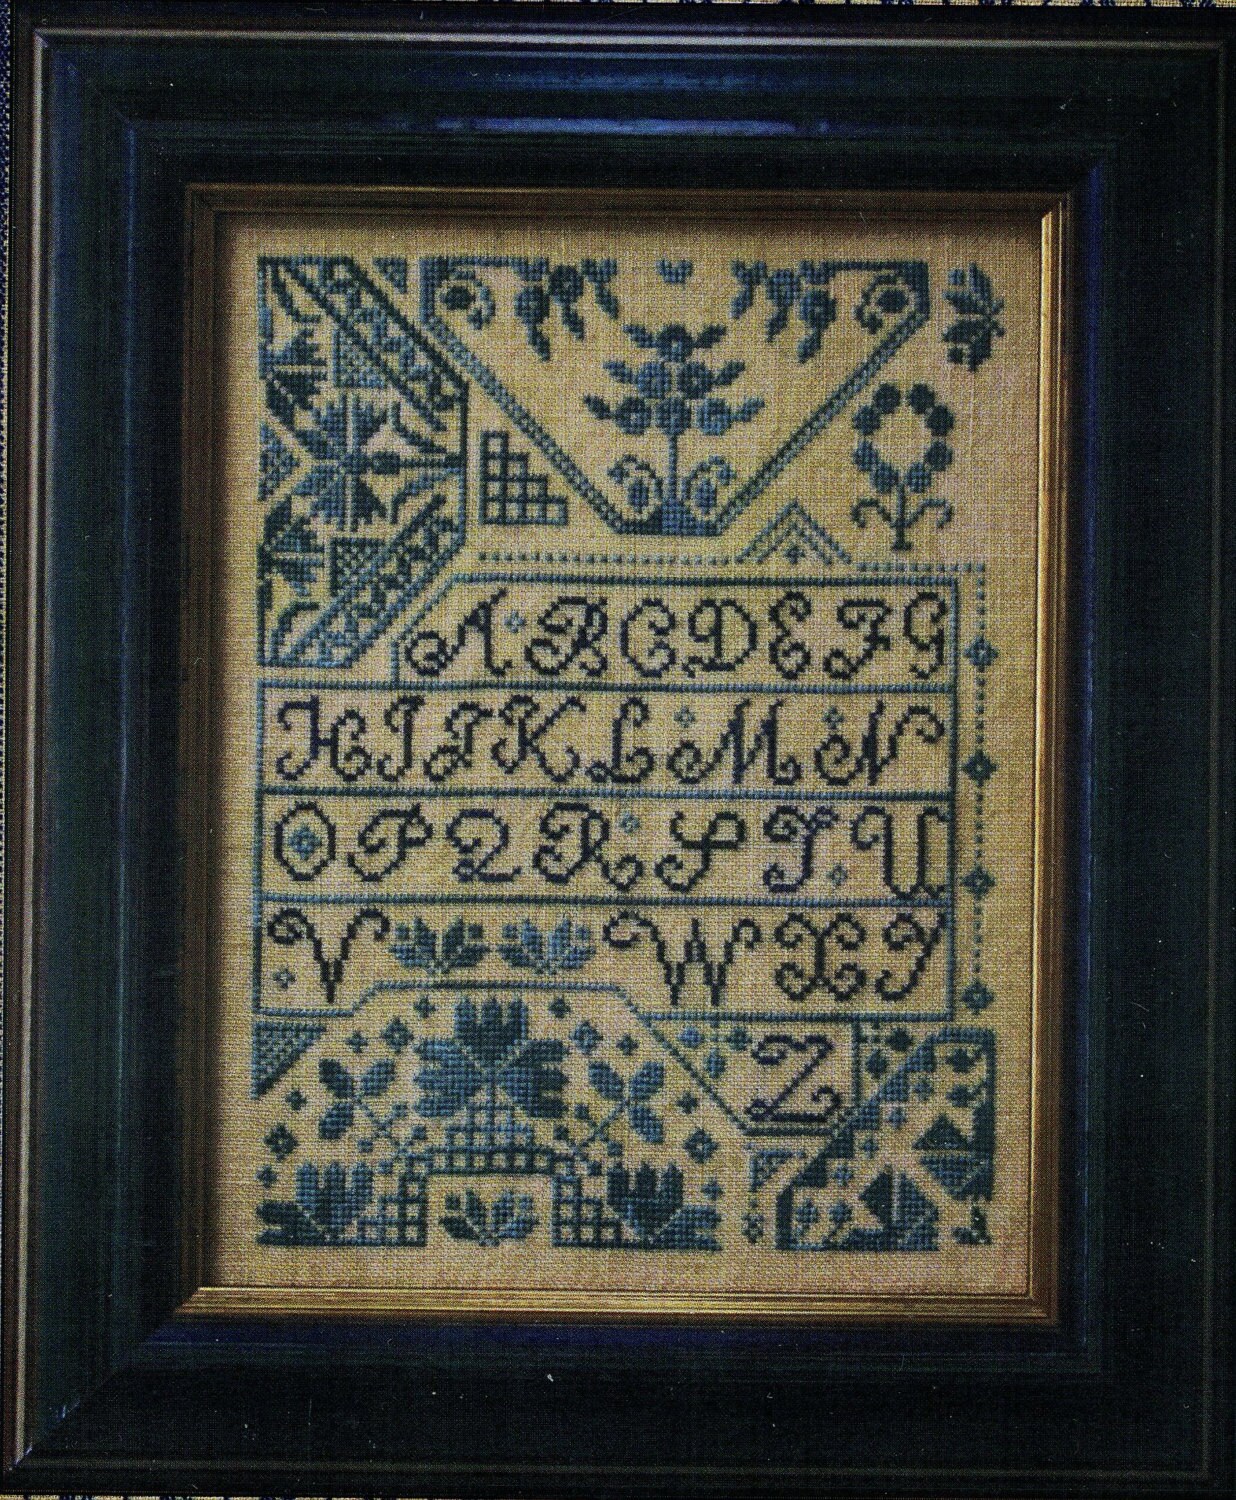 A B C D E F G
H I J K L M N
O P Q R S T U
V W X Y
Z